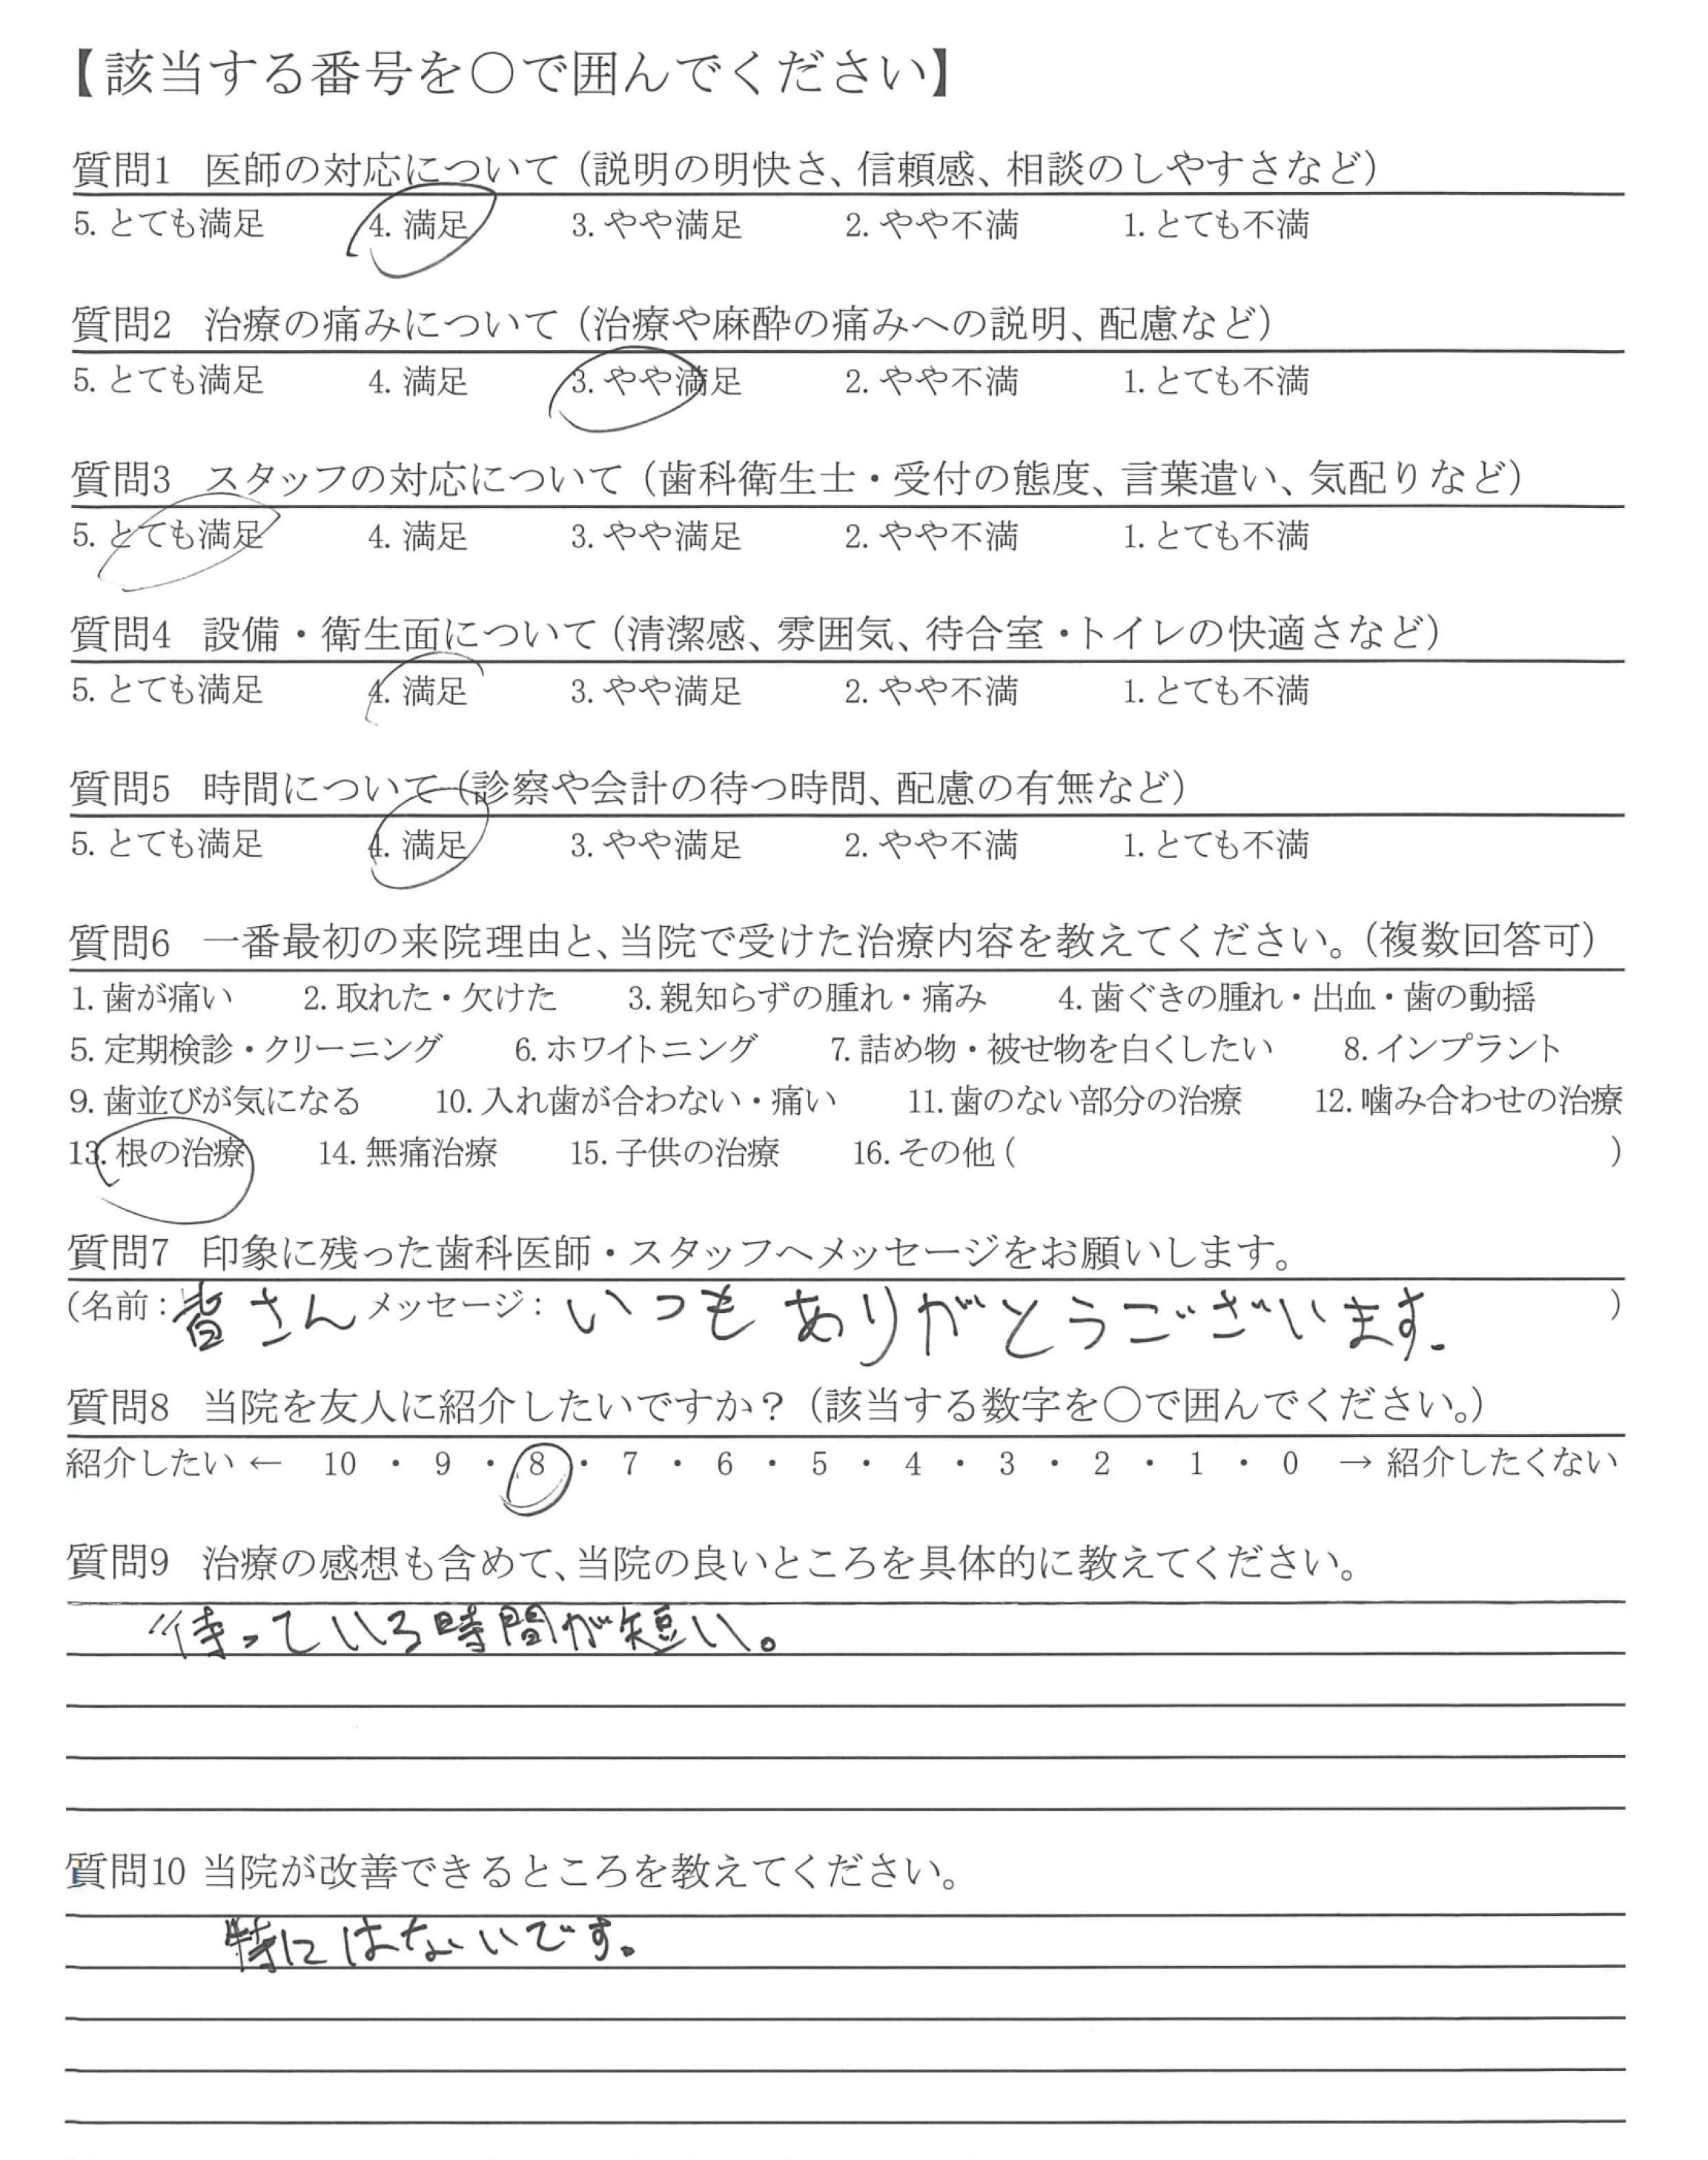 【該当する番号を○で囲んでください】
質問1 医師の対応について（説明の明快さ、信頼感、相談のしやすさなど）
5. とても満足 4. 満足 3. やや満足 2. やや不満 1. とても不満
質問2 治療の痛みについて（治療や麻酔の痛みへの説明、配慮など）
5. とても満足 4. 満足 3. やや満足 2. やや不満 1. とても不満
質問3 スタッフの対応について（歯科衛生士・受付の態度、言葉遣い、気配りなど）
5. とても満足 4. 満足 3. やや満足 2. やや不満 1. とても不満
質問4 設備・衛生面について（清潔感、雰囲気、待合室・トイレの快適さなど）
5. とても満足 4. 満足 3. やや満足 2. やや不満 1. とても不満
質問5 時間について（診察や会計の待つ時間、配慮の有無など）
5. とても満足 4. 満足 3. やや満足 2. やや不満 1. とても不満
質問6 一番最初の来院理由と、当院で受けた治療内容を教えてください。（複数回答可）
1. 歯が痛い 2. 取れた・欠けた 3. 親知らずの腫れ・痛み 4. 歯ぐきの腫れ・出血・歯の動揺
5. 定期検診・クリーニング 6. ホワイトニング 7. 詰め物・被せ物を白くしたい 8. インプラント
9. 歯並びが気になる 10. 入れ歯が合わない・痛い 11. 歯のない部分の治療 12. 噛み合わせの治療
13. 根の治療 14. 無痛治療 15. 子供の治療 16. その他 ( )
質問7 印象に残った歯科医師・スタッフへメッセージをお願いします。
(名前：皆さん メッセージ：いつもありがとうございます. )
質問8 当院を友人に紹介したいですか？（該当する数字を○で囲んでください。）
紹介したい ← 10 ・ 9 ・ 8 ・ 7 ・ 6 ・ 5 ・ 4 ・ 3 ・ 2 ・ 1 ・ 0 → 紹介したくない
質問9 治療の感想も含めて、当院の良いところを具体的に教えてください。
待っている時間が短い。
質問10 当院が改善できるところを教えてください。
特にはないです。